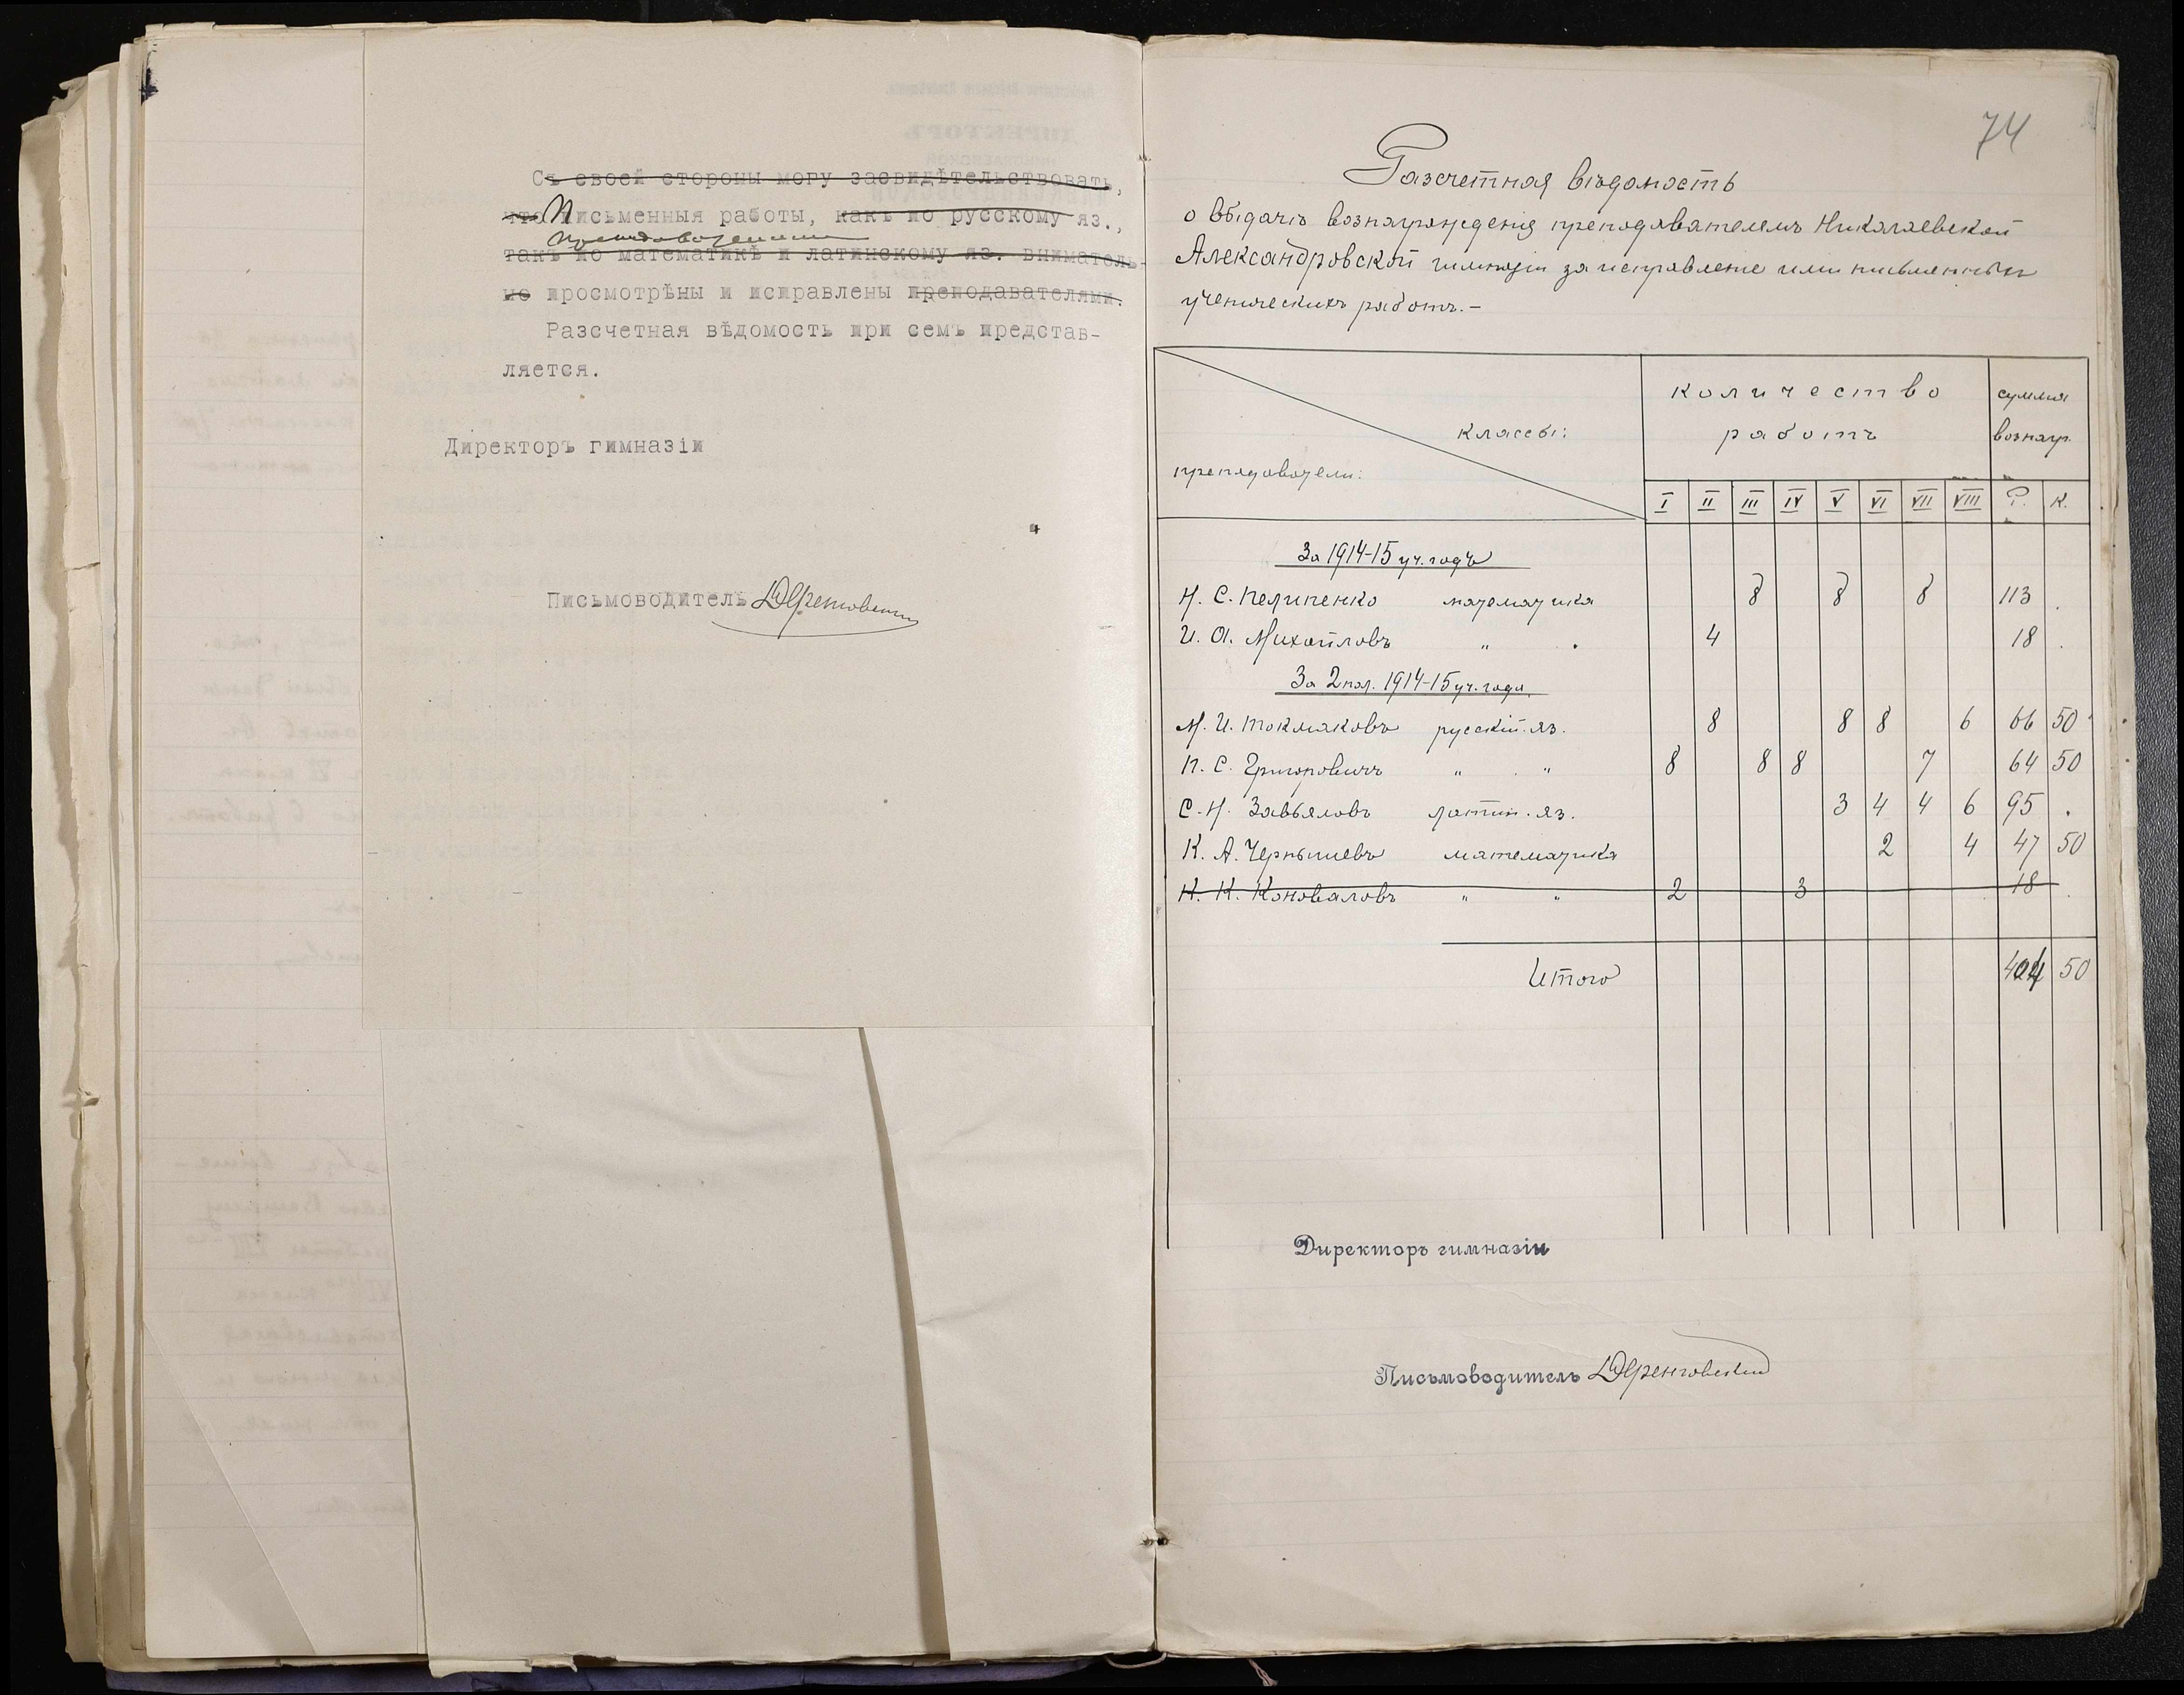 Съ своей стороны могу засвидѣтельствовать,
что Письменныя работы, какъ по русскому яз.,
преподавателями
такъ по математикѣ и латинскому яз. вниматель-
но просмотрѣны и исправлены преподавателями.
Разсчетная вѣдомость при семъ представ-
ляется.
Директоръ гимназіи
Письмоводитель
74
Разсчетная вѣдомость
о выдачѣ вознагражденія преподавателямъ Николаевской
Александровской гимназіи за исправленіе ими письменныхъ
ученическихъ работъ.-
классы:
преподаватели:
количество
работъ
сумма
вознагр.
I II III IV V VI VII VIII Р. К.
За 1914-15 уч. годъ
Н. С. Пелипенко математика 8 8 8 113 .
И. А. Михайловъ " . 4 18 .
За 2 пол. 1914-15 уч. года.
М. И. Токмаковъ русскій яз. 8 8 8 6 66 50
П. С. Григоровичъ " " 8 8 8 7 64 50
С. Н. Завьяловъ латин. яз. 3 4 4 6 95 .
К. А. Чернышевъ математика 2 4 47 50
Н. К. Коноваловъ " " 2 3 18 .
Итого 404 50
Директоръ гимназіи
Письмоводитель